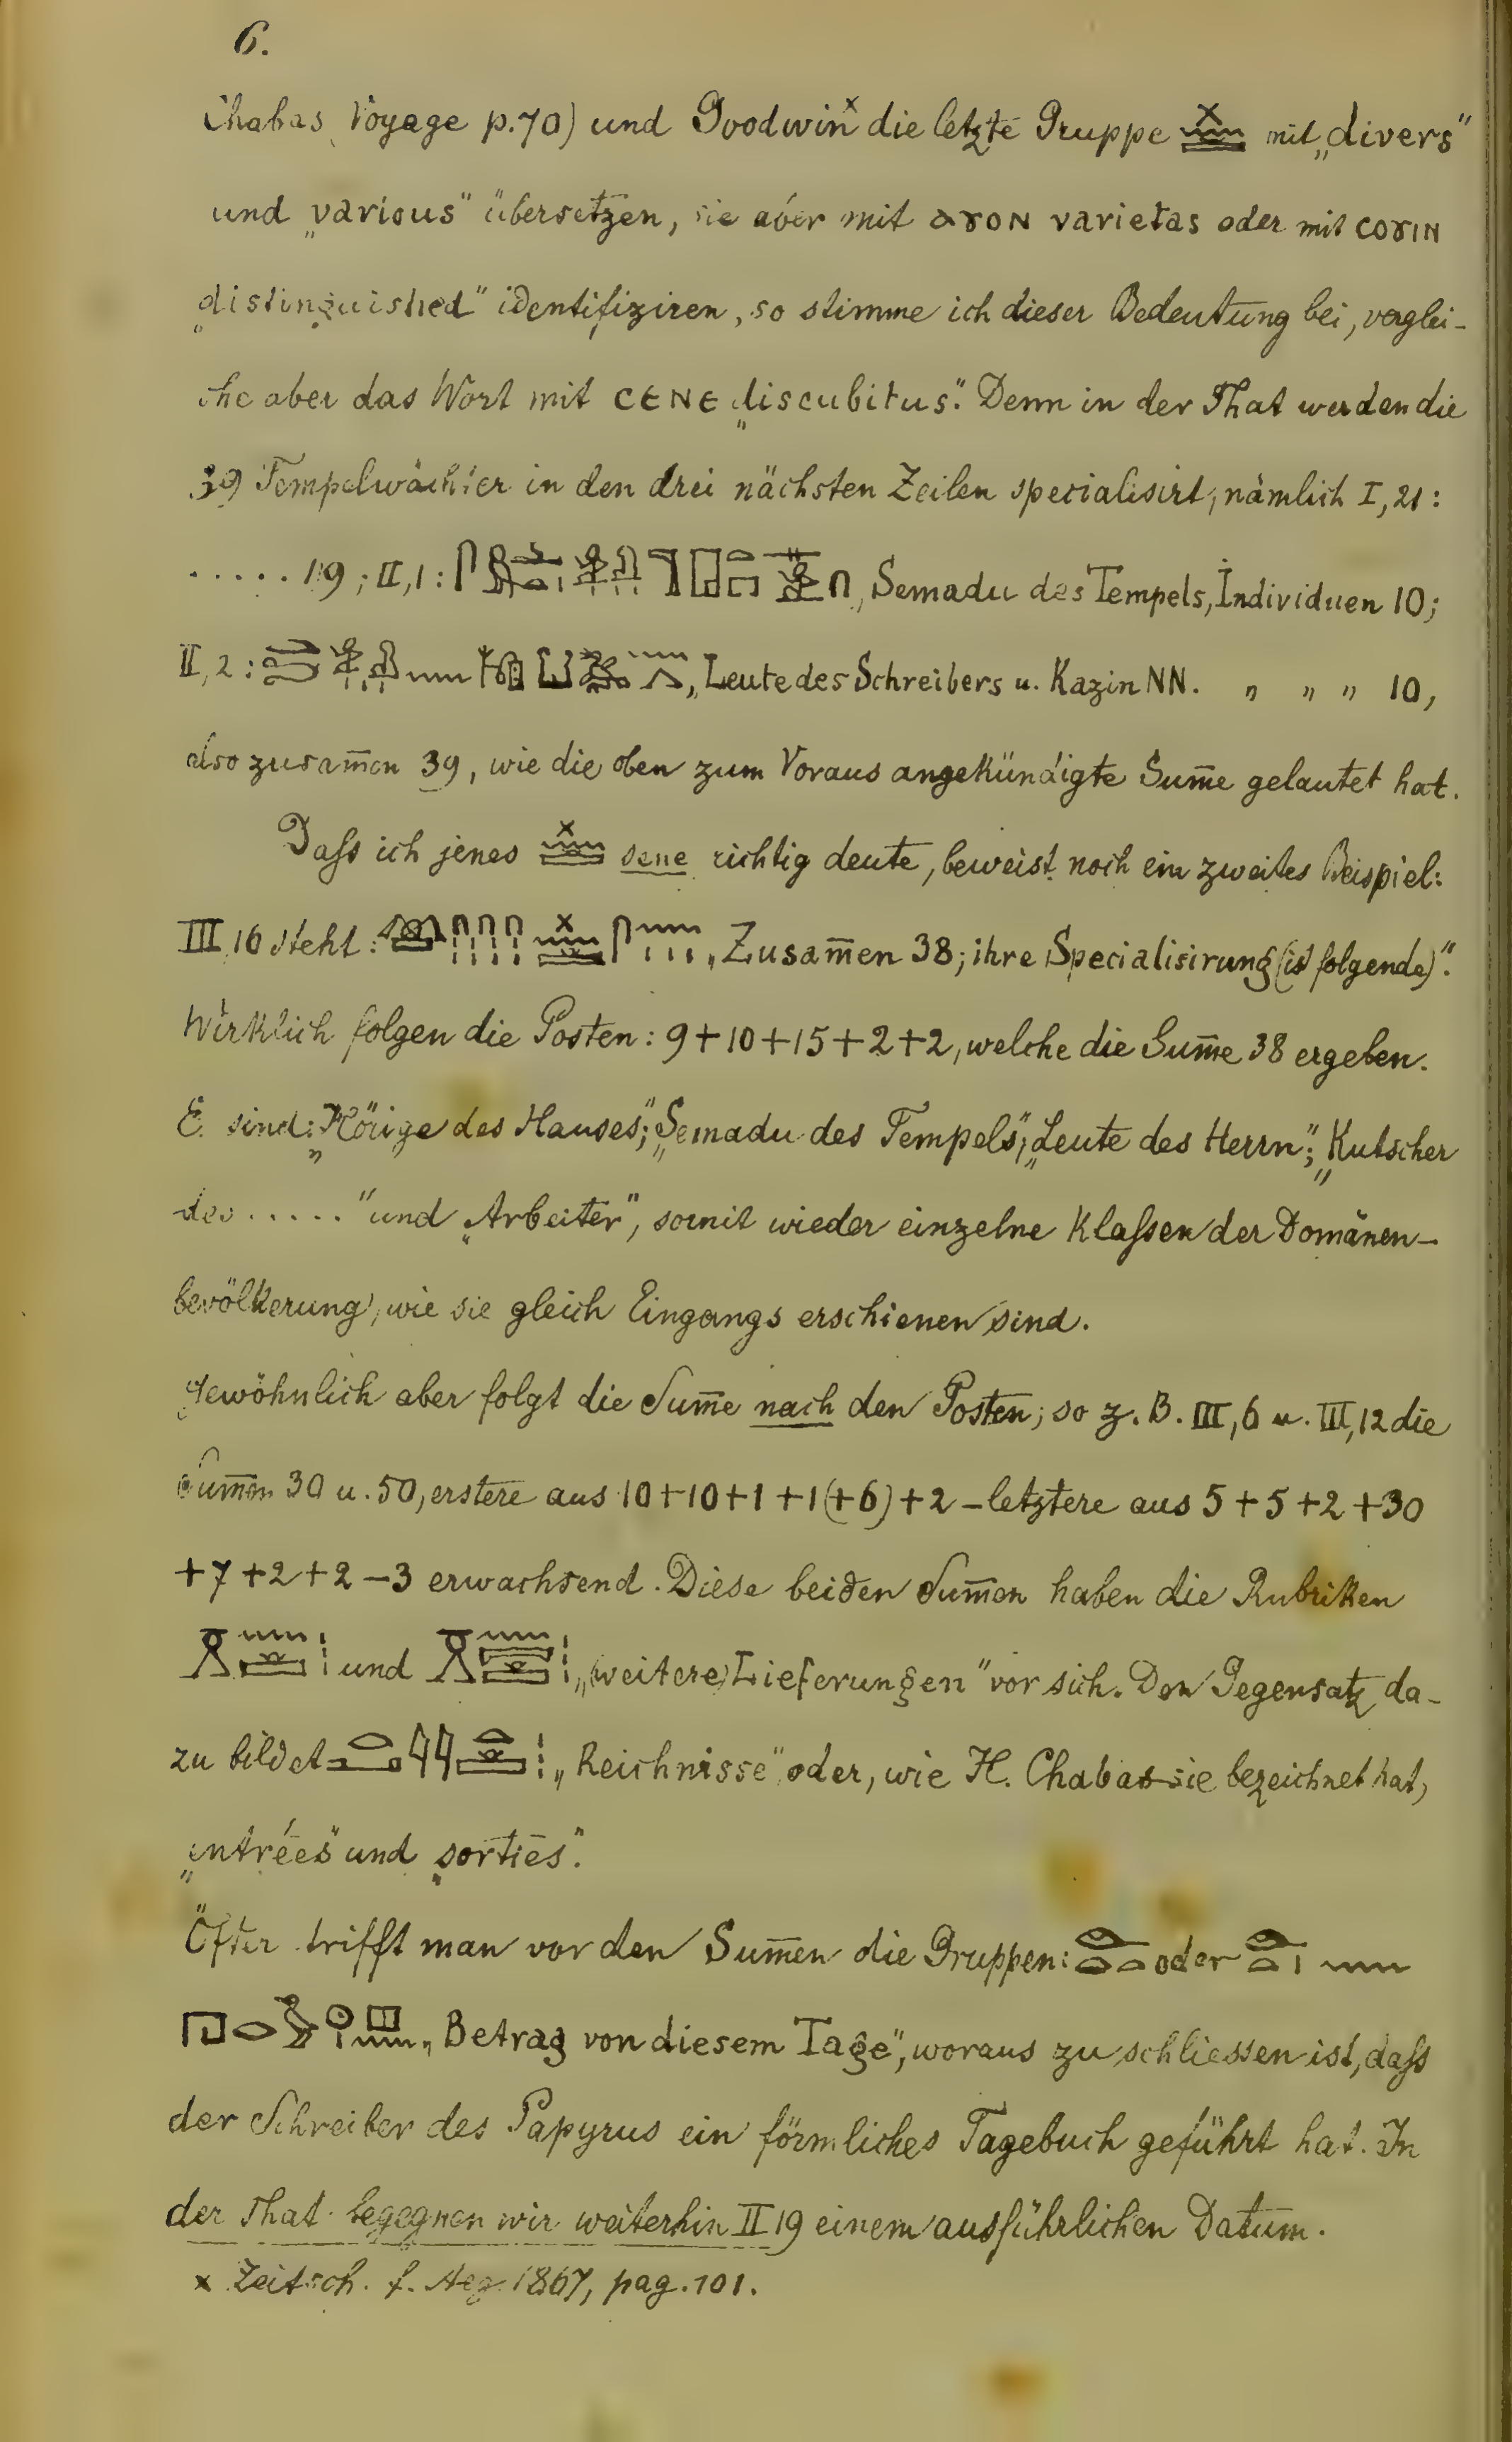 6.
Chabas Voyage p. 70) und Goodwin x die letzte Gruppe mit „divers"
und „various" übersetzen, sie aber mit ⲁⲩⲟⲛ varietas oder mit ⲥⲟⲩⲓⲛ
„distinguished" identifiziren, so stimme ich dieser Bedeutung bei, verglei-
che aber das Wort mit ⲥⲉⲛⲉ „discubitus". Denn in der That werden die
39 Tempelwächter in den drei nächsten Zeilen specialisirt, nämlich I, 21:
. . . . . 19; II, 1: „Semadu des Tempels, Individuen 10;
II, 2: „Leute des Schreibers u. Kazin NN. „ „ „ 10,
also zusam̅en 39, wie die oben zum Voraus angekündigte Sum̅e gelautet hat.
Daſs ich jenes sene richtig deute, beweist noch ein zweites Beispiel:
III, 16 steht: „Zusam̅en 38; ihre Specialisirung (ist folgende)".
Wirklich folgen die Posten: 9+10+15+2+2, welche die Sum̅e 38 ergeben.
Es sind: „Hörige des Hauses"; „Semadu des Tempels"; „Leute des Herrn"; „Kutscher
des . . . . . " und „Arbeiter", somit wieder einzelne Klaſsen der Domänen-
bevölkerung, wie sie gleich Eingangs erschienen sind.
Gewöhnlich aber folgt die Sum̅e nach den Posten; so z. B. III, 6 u. III, 12 die
Sum̅en 30 u. 50, erstere aus 10+10+1+1(+6)+2 – letztere aus 5+5+2+30
+7+2+2–3 erwachsend. Diese beiden Sum̅en haben die Rubriken
und „(weitere) Lieferungen" vor sich. Den Gegensatz da-
zu bildet „Reichnisse" oder, wie H. Chabas sie bezeichnet hat,
„entrées" und „sorties".
Öfter trifft man vor den Sum̅en die Gruppen: oder
„Betrag von diesem Tage", woraus zu schliessen ist, daſs
der Schreiber des Papyrus ein förmliches Tagebuch geführt hat. In
der That begegnen wir weiterhin II 19 einem ausführlichen Datum.
x Zeitsch. f. Aeg. 1867, pag. 101.